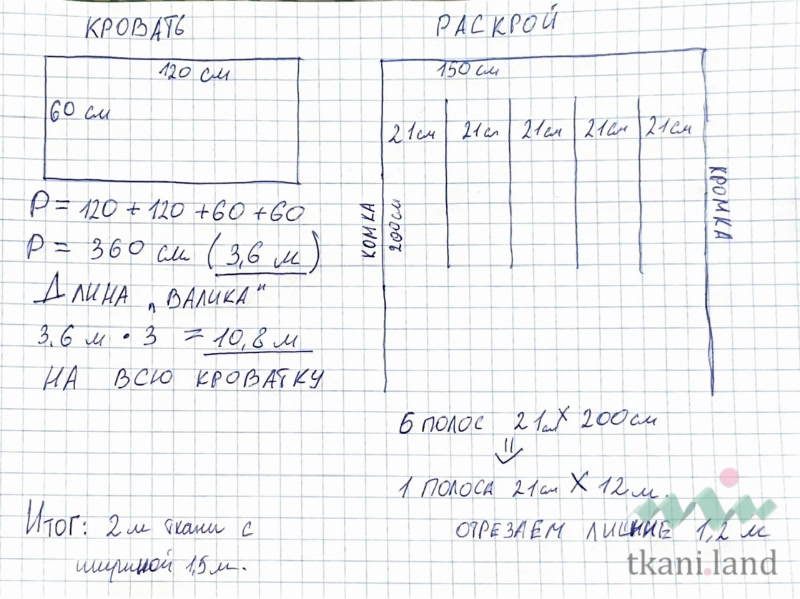 КРОВАТЬ
120 см
60 см
P = 120 + 120 + 60 + 60
P = 360 см (3,6 м)
ДЛИНА „ВАЛИКА“
3,6 м · 3 = 10,8 м
НА ВСЮ КРОВАТКУ
Итог: 2 м ткани с
шириной 1,5 м.
РАСКРОЙ
150 см
21см 21см 21см 21см 21см
КОМКА
200см
КРОМКА
6 ПОЛОС 21см X 200см
1 ПОЛОСА 21см X 12 м.
ОТРЕЗАЕМ ЛИШНИЕ 1,2 м
tkani.land